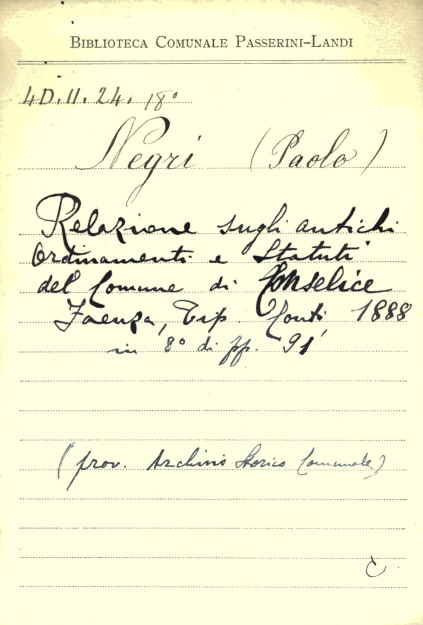 BIBLIOTECA COMUNALE PASSERINI-LANDI
4D.II.24. 18°
Negri (Paolo)
Relazione sugli antichi
Ordinamenti e Statuti
del Comune di Conselice
Faenza, Tip. Conti 1888
in 8° di pp. 91
(prov. Archivio Storico Comunale)
C